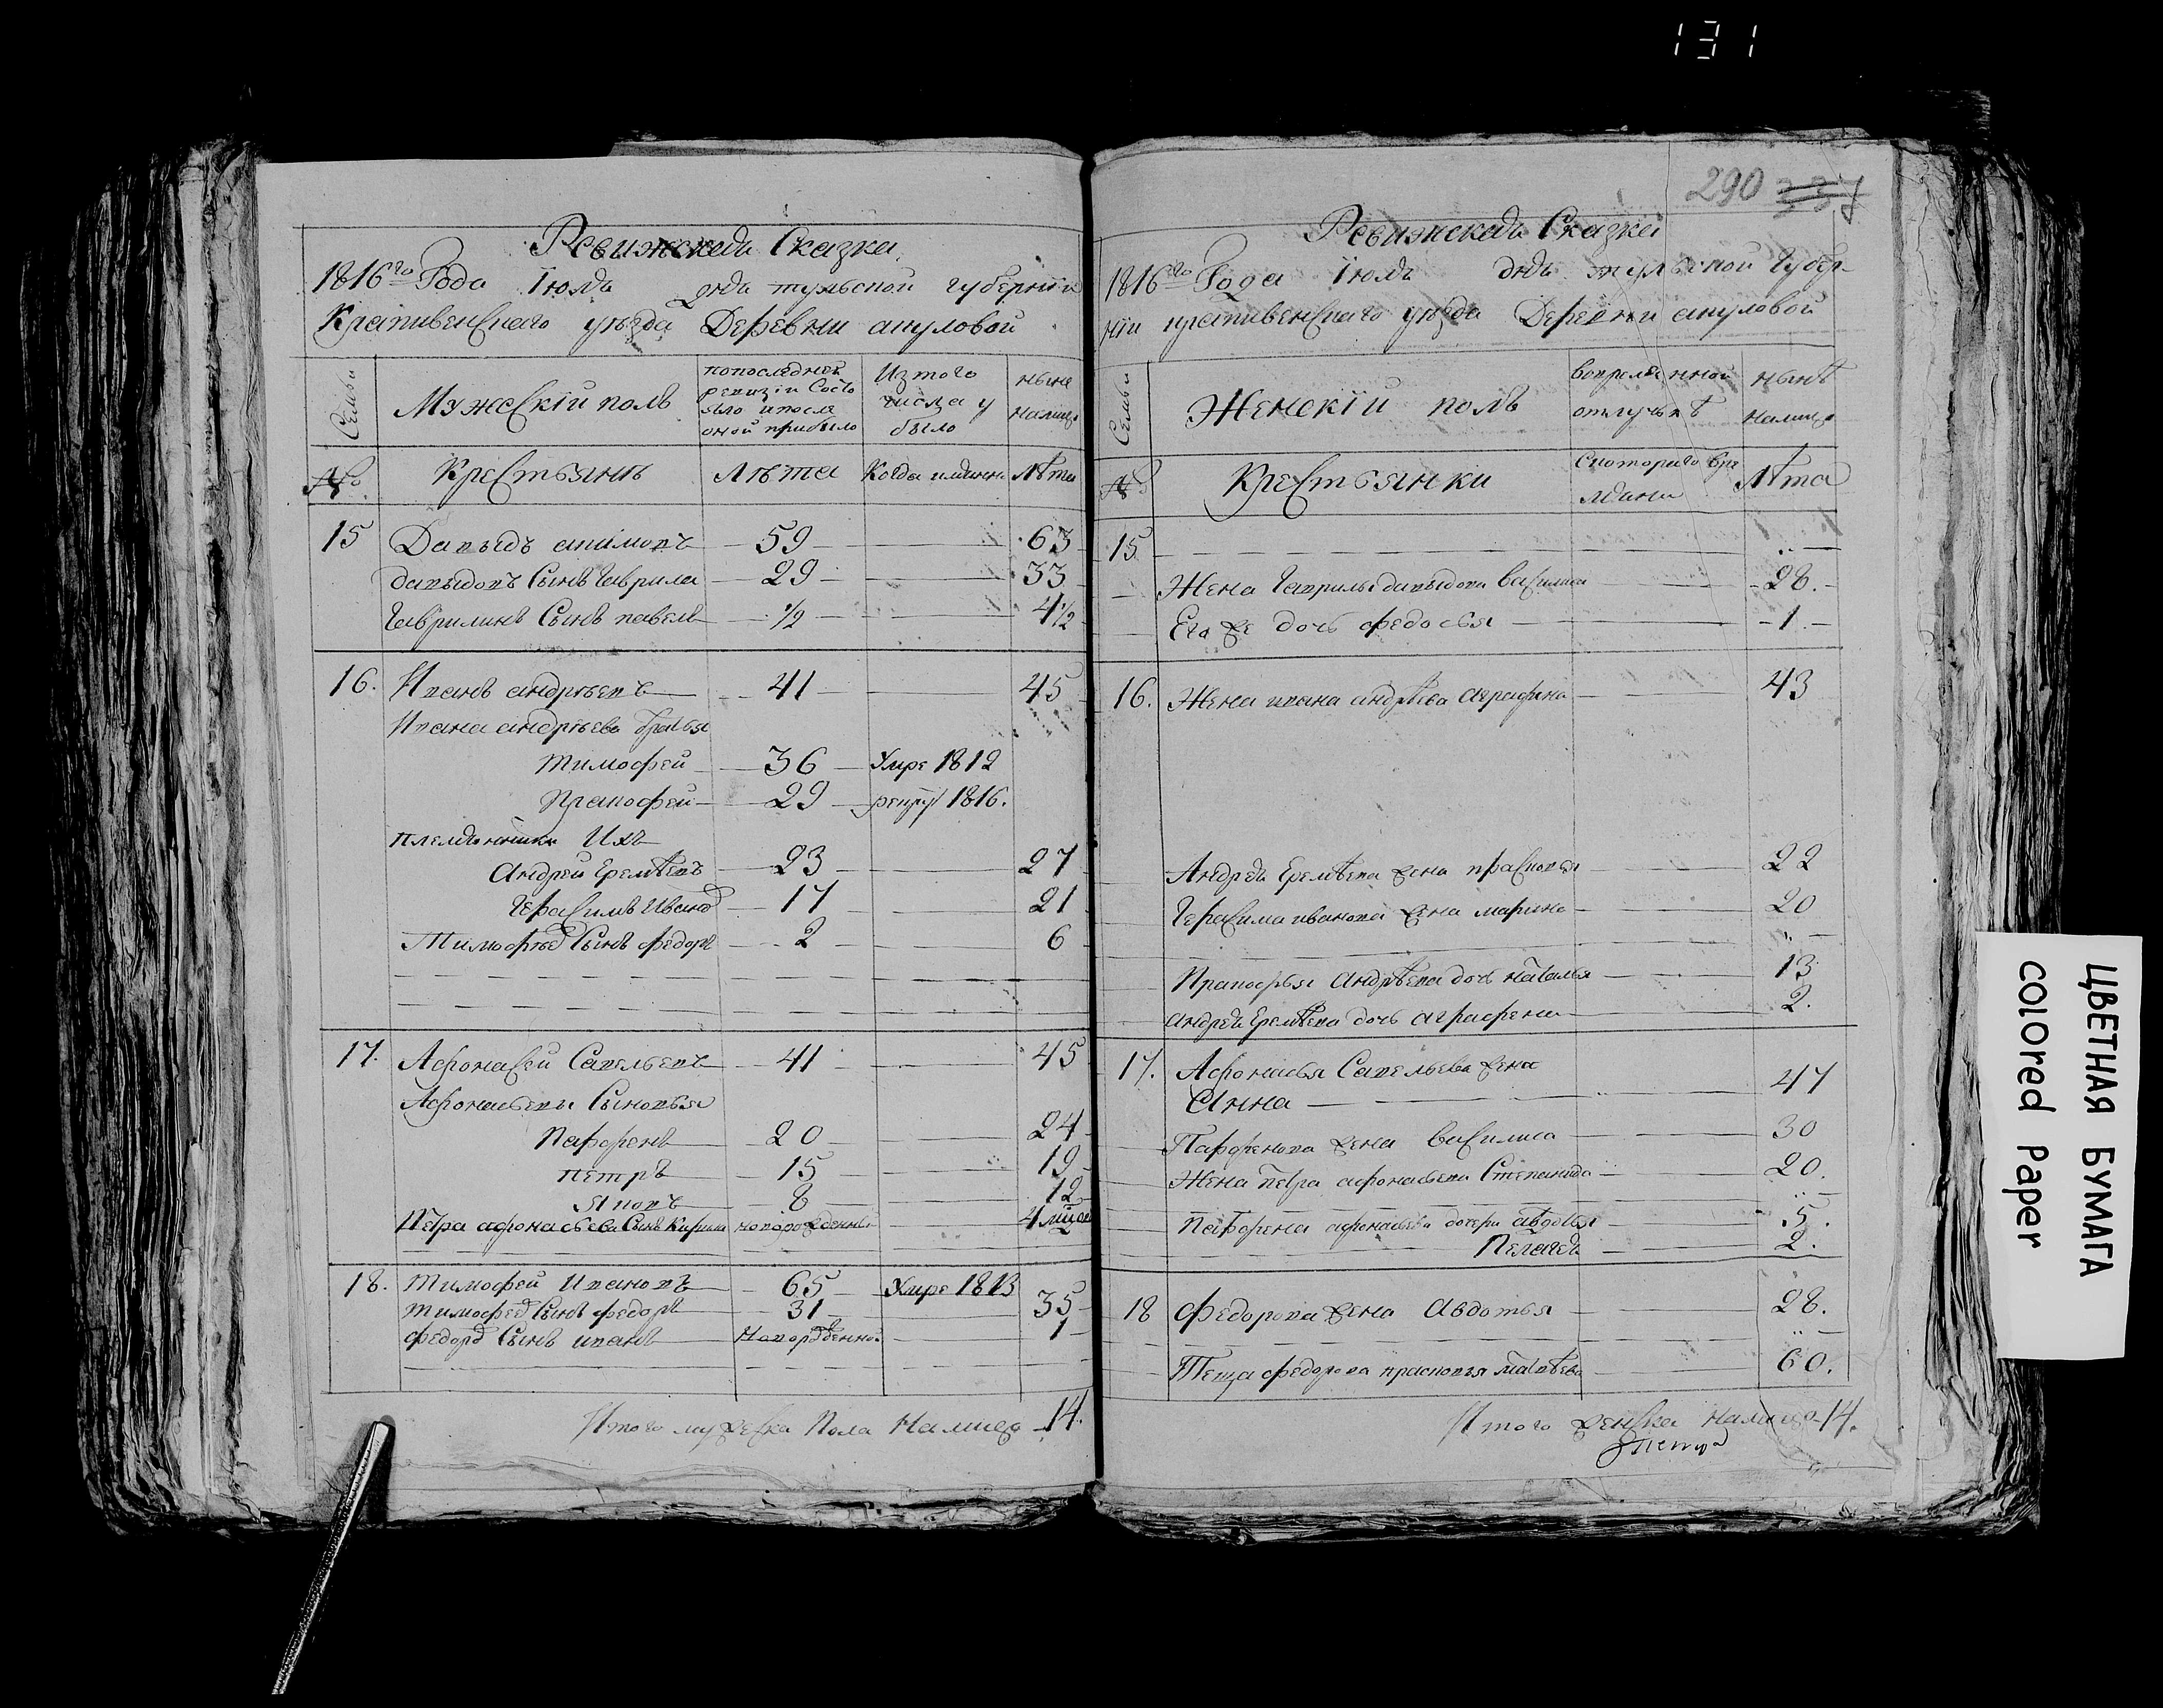 131
290
Ревижская Сказка
1816го Года Июля дня тульской губернии
Крапивенскаго уезда Деревни акуловой
Семьи
Мужескiй полъ
попоследней
ревизiи Состо
яло ипосле
оной прибыло
Изтого
числа у
было
ныне
налицо
№
Крестьянъ
Лѣта
Когда имянно
Лѣта
15 Давыдъ акимовъ 59 63
давыдовъ Сынъ Гаврила 29 33
Гаврилинъ Сынъ павелъ ½ 4½
16. Иванъ андрѣевъ 41 45
Ивана андрѣева братья
тимофей 36 Умре 1812
Пракофей 29 рекрут 1816.
племянники Ихъ
андрей Еремѣевъ 23 27
Герасимъ Иванов 17 21
Тимофѣев Сынъ федоръ 2 6
17. Афонасей Савельевъ 41 45
Афонасьевы Сыновья
Парфенъ 20 24
петръ 15 19
Яковъ 8 12
Петра афонасьева Сынъ Кирила новорожденный 4 мцов
18. тимофей Ивановъ 65 Умре 1813
тимофеев Сынъ федоръ 31 35
федоров Сынъ иванъ Новорожденной 1
Итого мужеска Пола Налицо 14.
Ревижская Сказка
1816го Года Июля дня тульской Губер-
нiи крапивенскаго уезда Деревни акуловой
Семьи
Женскiй полъ
вовременной
отлучкѣ
нынѣ
налицо
№
Крестьянки
Скоторого вре
мяни
Лѣта
15
Жена Гаврилы давыдова василиса 28.
Его же дочь федосья 1
16. Жена ивана андрѣева аграфена 43
Андрея Еремѣева жена прасковья 22
Герасима иванова жена марина 20
Пракофья андрѣева дочь наталья 13
андрея Еремѣева дочь аграфена 2.
17. Афонасья Савельева жена
Анна 47
Парфенова жена василиса 30
Жена петра афонасьева Степанида 20.
парфена афонасьева дочери авдотья 5.
Пелагея 2.
18 федорова жена авдотья 28.
Теща федорова прасковья матвѣева 60.
Итого женска налицо 14.
ЦВЕТНАЯ БУМАГА
COLORED PAPER